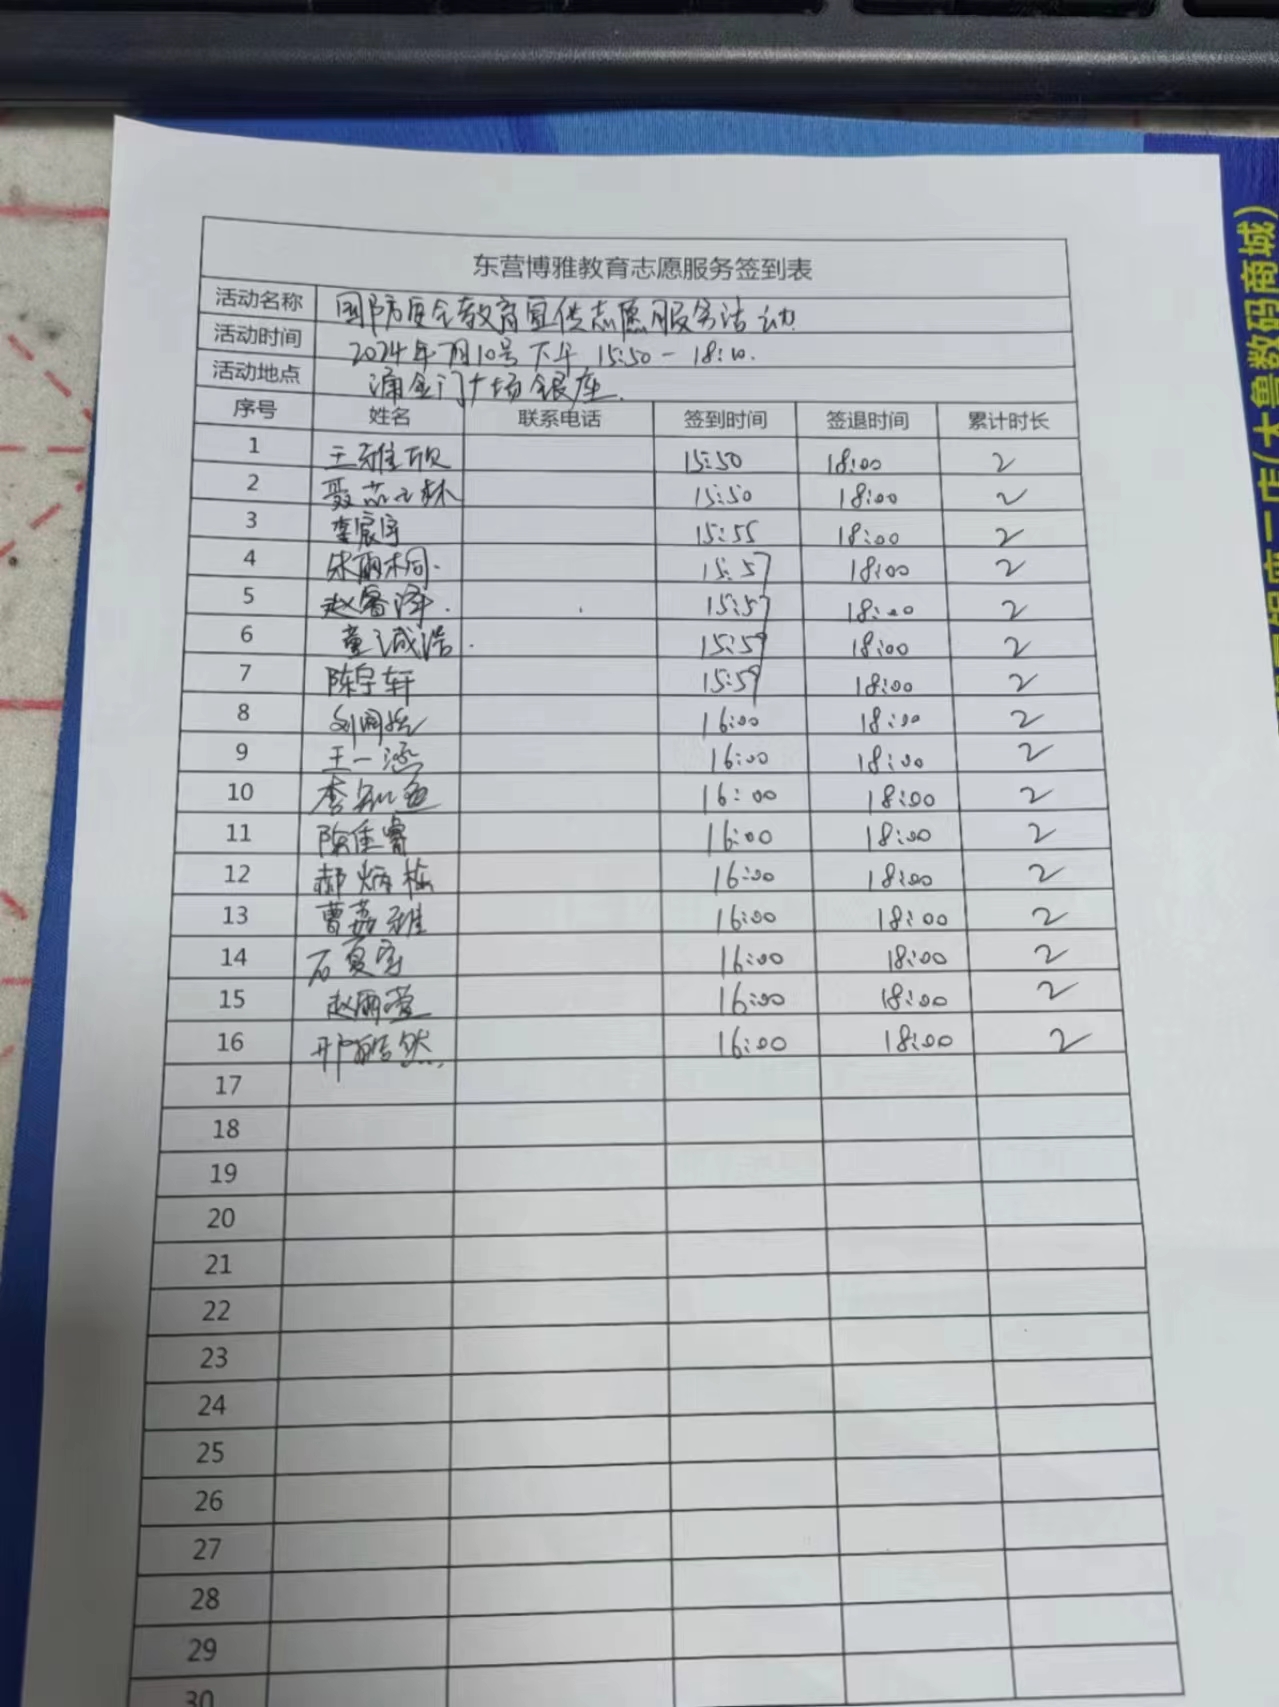 东营博雅教育志愿服务签到表
活动名称 国防安全教育宣传志愿服务活动
活动时间 2024年7月10号下午 15:50-18:10.
活动地点 涌金门广场银座.
序号 姓名 联系电话 签到时间 签退时间 累计时长
1 王雅欣 15:50 18:00 2
2 聂芯林 15:50 18:00 2
3 李宸宇 15:55 18:00 2
4 宋雨桐. 15:57 18:00 2
5 赵睿泽. 15:57 18:00 2
6 董诚浩. 15:59 18:00 2
7 陈宇轩 15:59 18:00 2
8 16:00 18:00 2
9 王一涵 16:00 18:00 2
10 李知鱼 16:00 18:00 2
11 陈佳睿 16:00 18:00 2
12 郝炳栋 16:00 18:00 2
13 曹荔雅 16:00 18:00 2
14 石夏宇 16:00 18:00 2
15 赵雨萱 16:00 18:00 2
16 邢皓然. 16:00 18:00 2
17
18
19
20
21
22
23
24
25
26
27
28
29
30